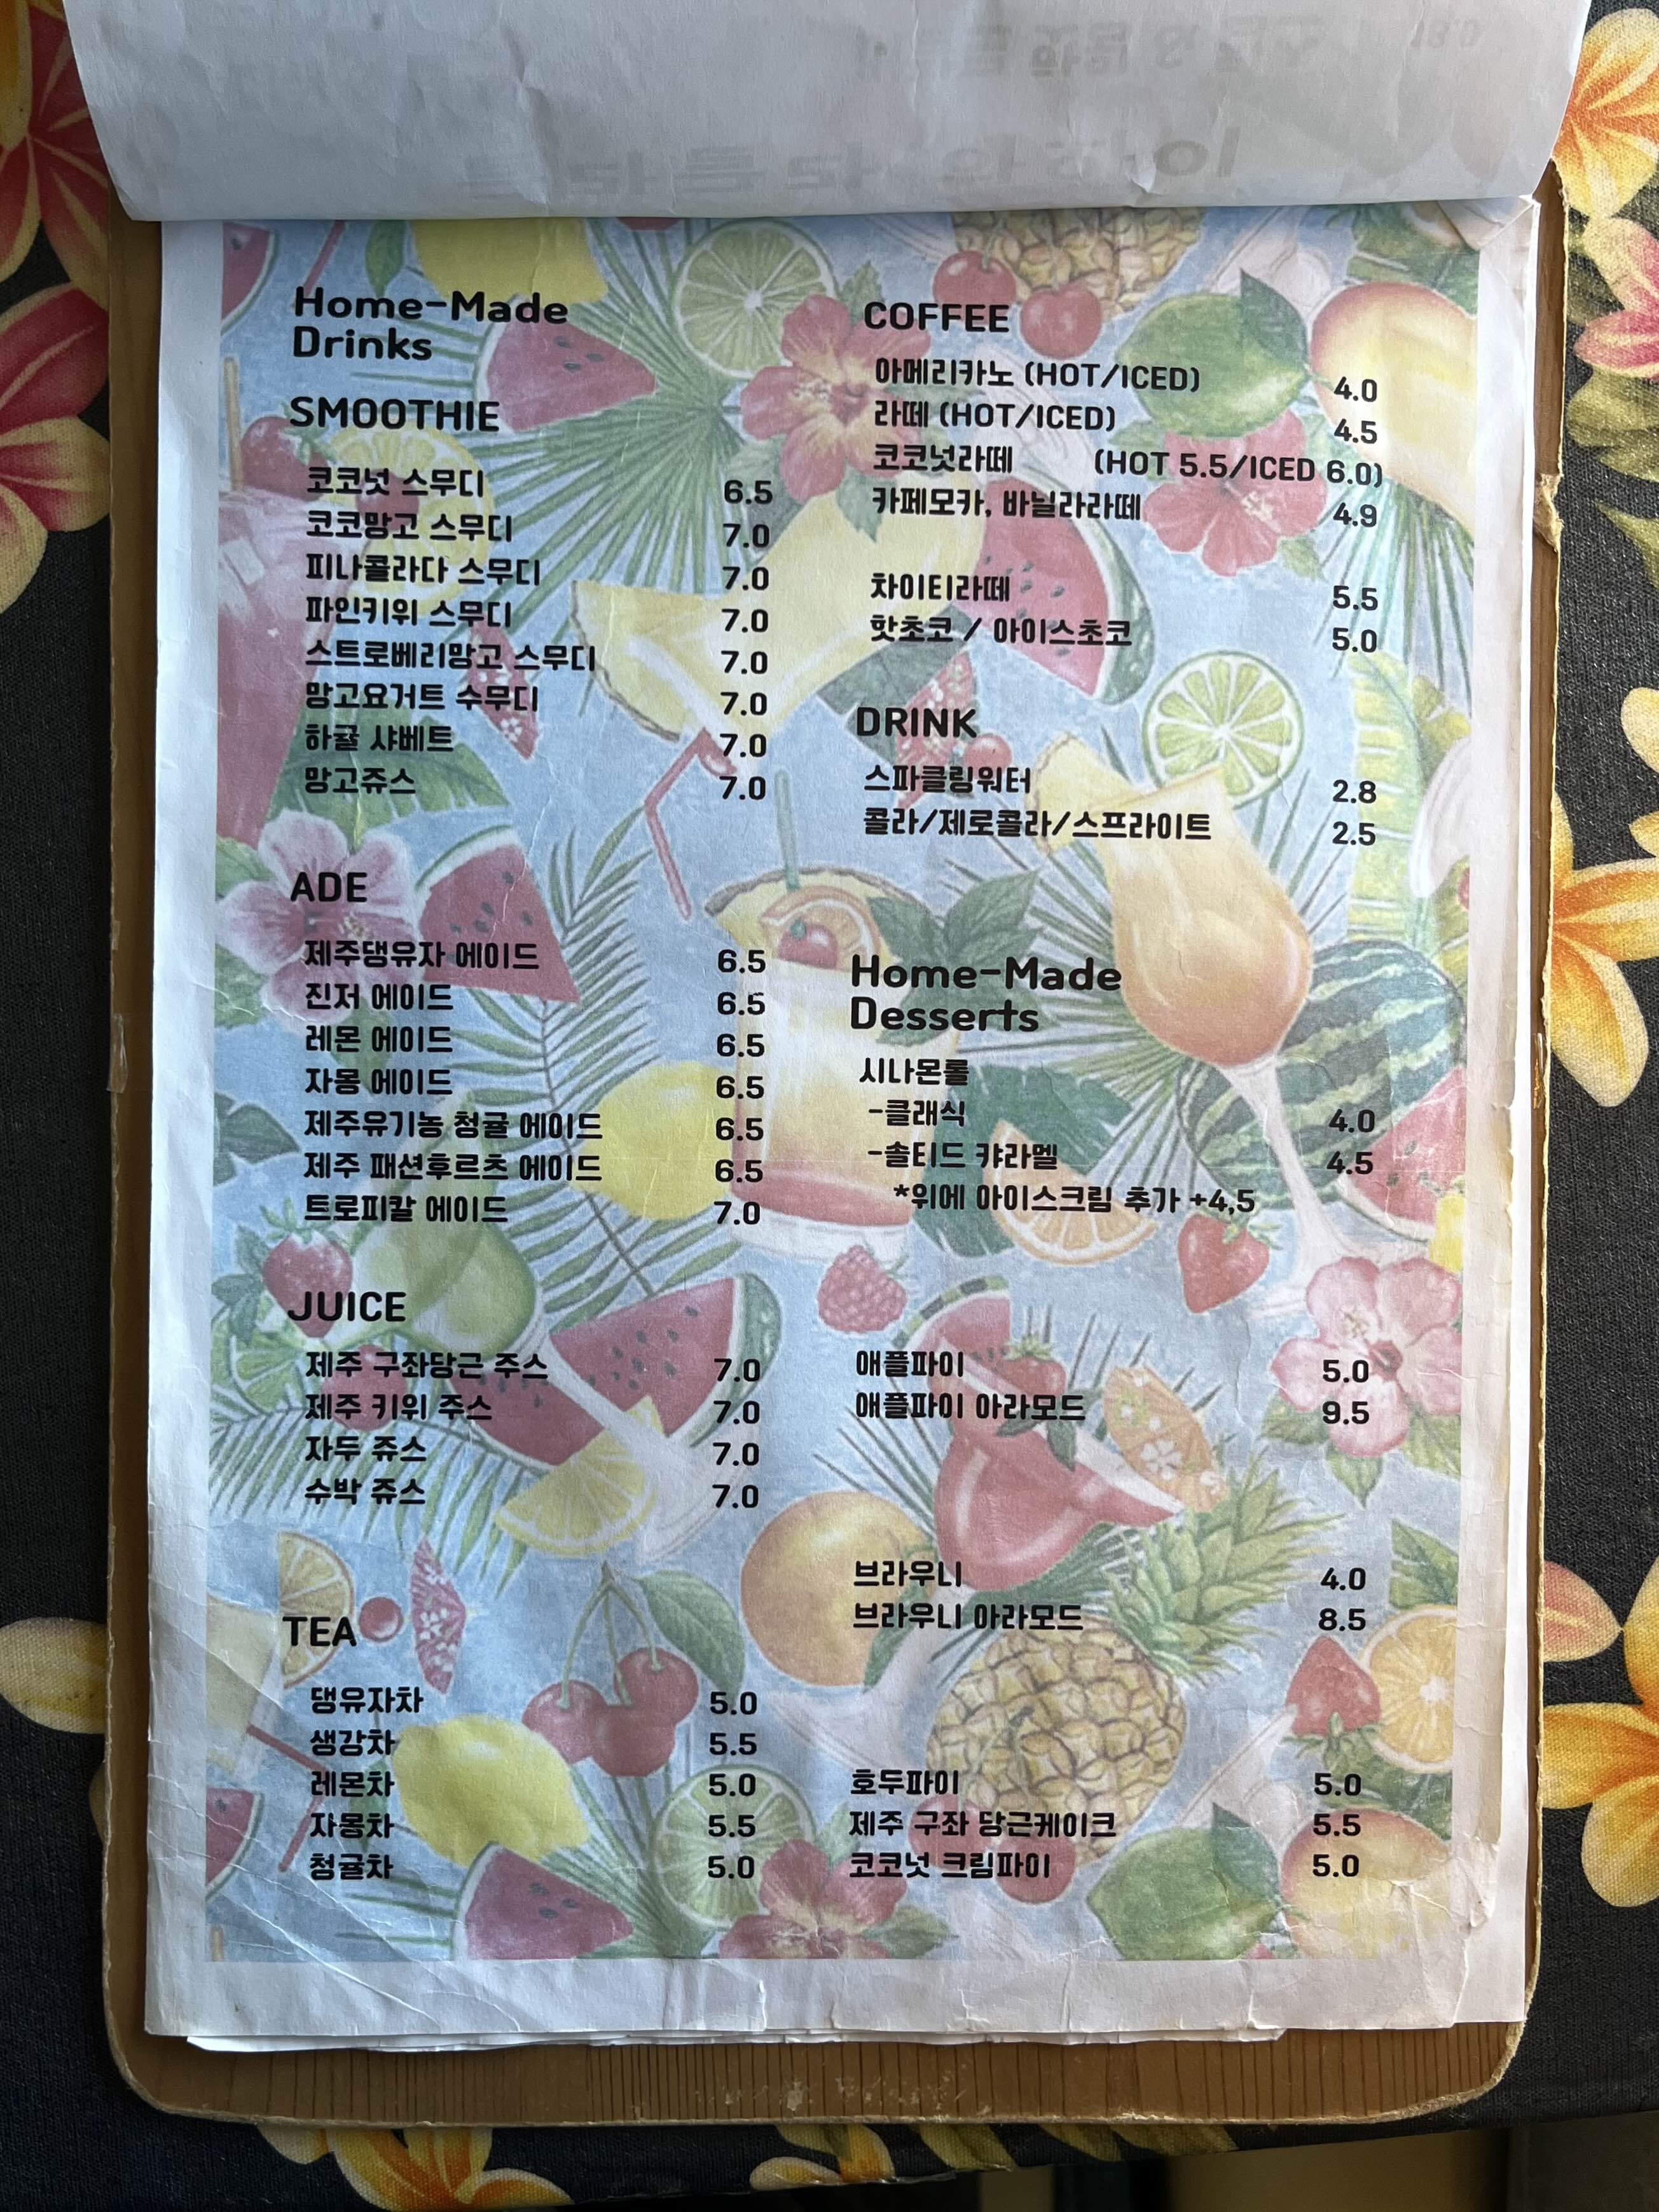 Home-Made
Drinks
SMOOTHIE
코코넛 스무디 6.5
코코망고 스무디 7.0
피나콜라다 스무디 7.0
파인키위 스무디 7.0
스트로베리망고 스무디 7.0
망고요거트 수무디 7.0
하귤 샤베트 7.0
망고쥬스 7.0
ADE
제주댕유자 에이드 6.5
진저 에이드 6.5
레몬 에이드 6.5
자몽 에이드 6.5
제주유기농 청귤 에이드 6.5
제주 패션후르츠 에이드 6.5
트로피칼 에이드 7.0
JUICE
제주 구좌당근 주스 7.0
제주 키위 주스 7.0
자두 쥬스 7.0
수박 쥬스 7.0
TEA
댕유자차 5.0
생강차 5.5
레몬차 5.0
자몽차 5.5
청귤차 5.0
COFFEE
아메리카노 (HOT/ICED) 4.0
라떼 (HOT/ICED) 4.5
코코넛라떼 (HOT 5.5/ICED 6.0)
카페모카, 바닐라라떼 4.9
차이티라떼 5.5
핫초코 / 아이스초코 5.0
DRINK
스파클링워터 2.8
콜라/제로콜라/스프라이트 2.5
Home-Made
Desserts
시나몬롤
-클래식 4.0
-솔티드 캬라멜 4.5
*위에 아이스크림 추가 +4,5
애플파이 5.0
애플파이 아라모드 9.5
브라우니 4.0
브라우니 아라모드 8.5
호두파이 5.0
제주 구좌 당근케이크 5.5
코코넛 크림파이 5.0